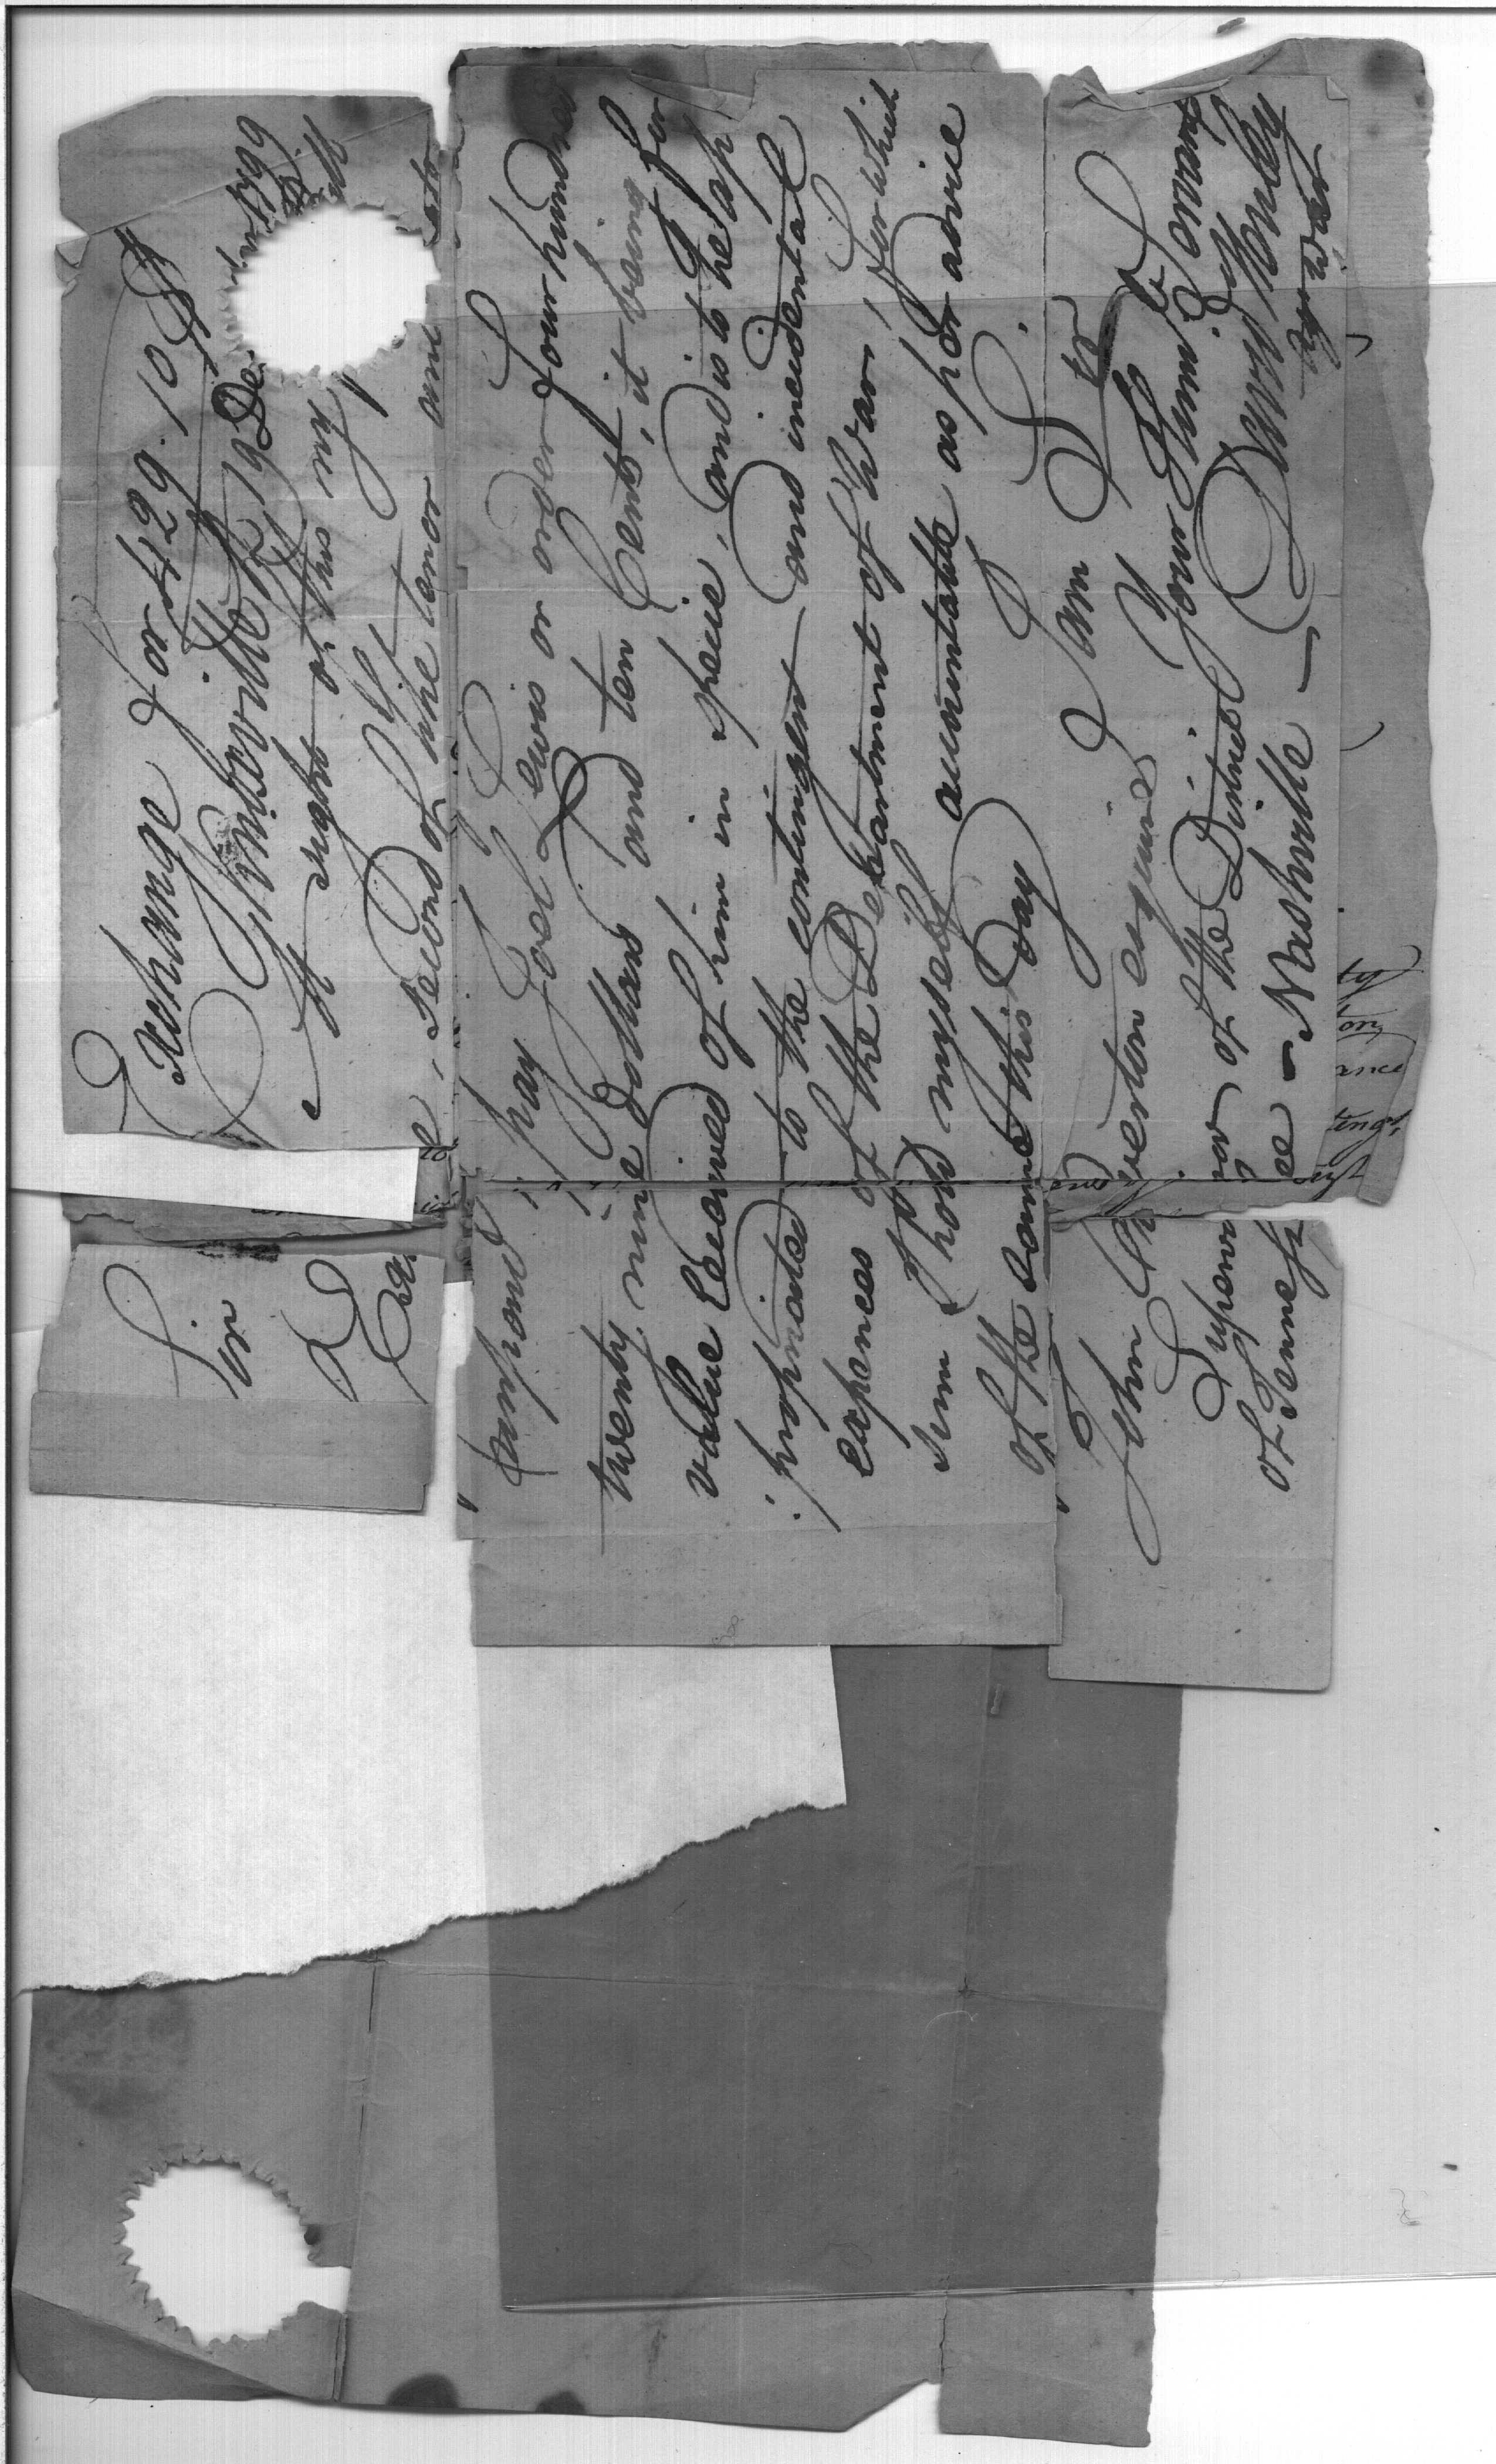 Exchange for 429.10 D
Knoxville 19 De
Sir
At sight of this my
second of the tenor and
:pay Joel Lewis or order Four hundred
twenty nine dollars and ten Cents, it being for
value received of him in specie, and is to be ap
:propriated to the contingent and incidental
expences of the Department of War, for which
sum I hold myself accountable as per advice
of the same this day
I am Sir
John Overton esquire Your Humb. Servant
Supervisor of the District David Henley
of Tennessee - Nashville — Ag. War
ty
ance